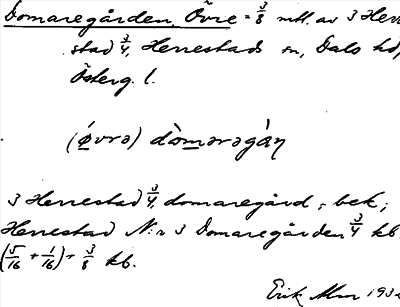 Domaregården, Övre = 3/8 mtl. av 3 Herre
stad 3/4, Herrestads sn, Dals hd,
Österg. l.
(øvrə) dòmərəgáɳ
3 Herrestad 3/4, domaregård, bek;
Herrestad N:r 3 Domaregården 3/4 kb.
(5/16 + 1/16) + 3/8 kb.
Erik 193